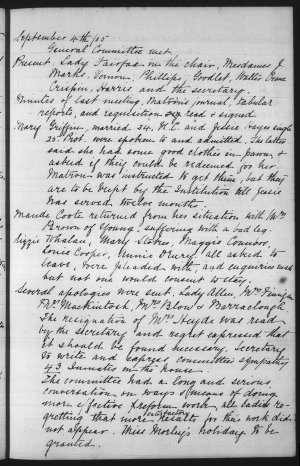 September 4th /05
General Committee met,
Present, Lady Fairfax in the chair, Mesdames J.
Marks, Vernon, Phillips, Goodlet, Walter
Crispin, Harris and the secretary.
Minutes of last meeting, Matron's journal, tabular
reports, and requisition read & signed
Mary Griffin, married. 34. R.C. and Jessie single
25. Prot. were spoken to and admitted. The latter
said she had some good clothes in pawn, &
asked if they could be redeemed for her.
Matron was instructed to get them, but they
are to be kept by the Institution till Jessie
has served twelve months.
Maude Coote returned from her situation with Mrs
Brown of Young, suffering with a bad leg.
Lizzie Whalan, Mary Stokes, Maggie Connor,
Louie Cooper, Annie Drury all asked to
leave, were pleaded with, and enquiries made
but not one would consent to stay.
Several apologies were sent, Lady Allen, Mrs
Mrs Mackintosh, Mrs & Barraclough
The resignation of Mrs Heyde was read
by the secretary and regret expressed that
it should be found necessary. Secretary
to write and express committee's sympathy
43 Inmates in the house.
The committee had a long and serious
conversation on ways & means of doing
more effective reform work, all ladies re-
gretting that more satisfactory results for this work did
not appear. Miss Morley's holiday to be
granted.